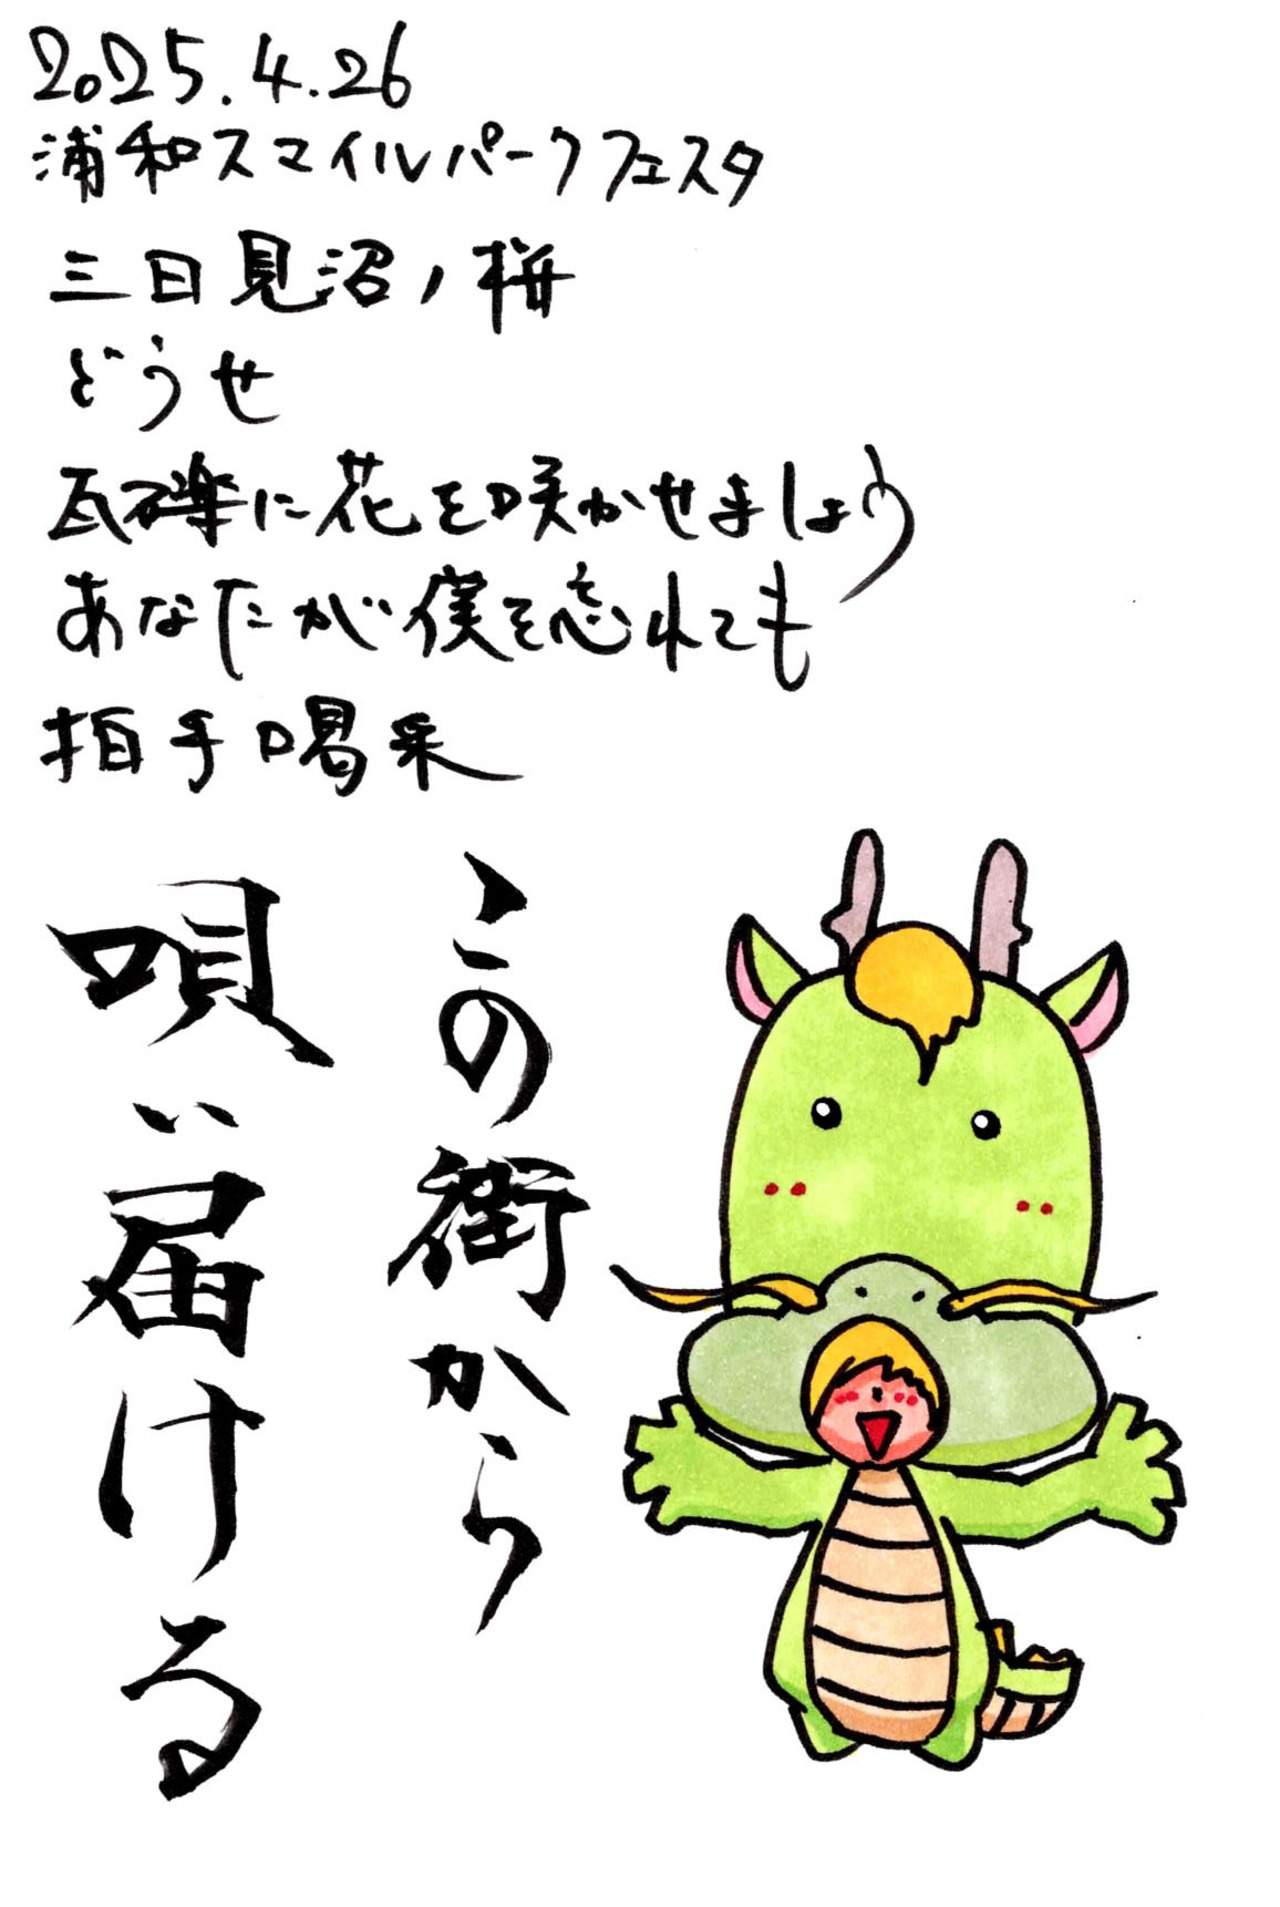 2025.4.26
浦和スマイルパークフェスタ
三日見沼ノ桜
どうせ
瓦礫に花を咲かせましょう
あなたが僕を忘れても
拍手喝采
この街から
唄い届ける